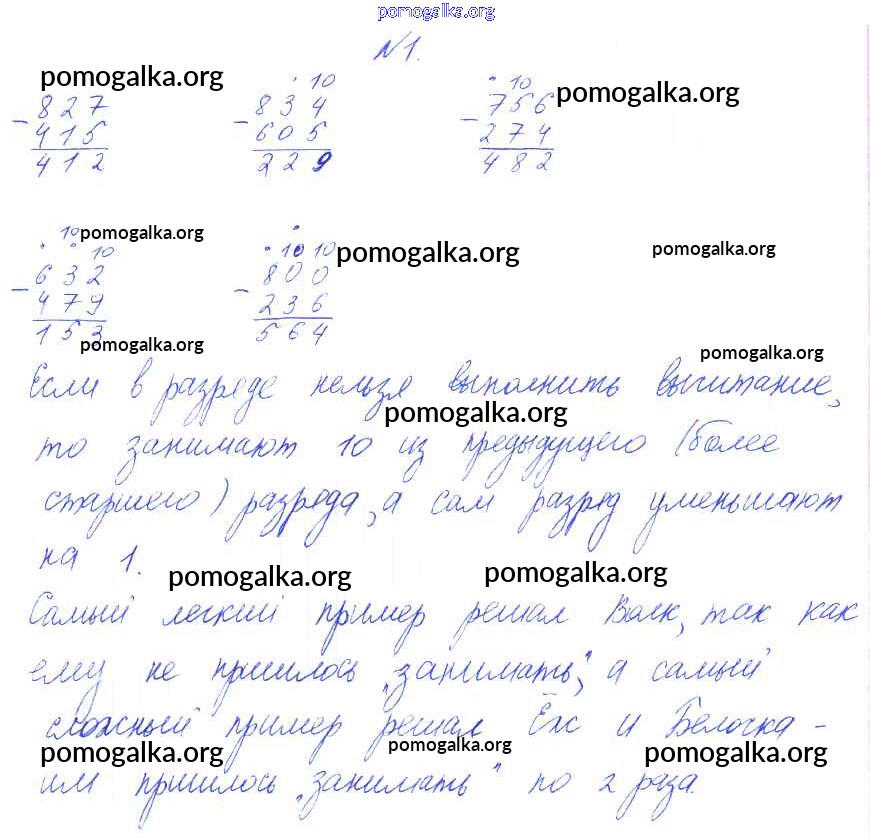 pomogalka.org
№1.
pomogalka.org
10
10
pomogalka.org
- 827
- 834
- 756
415
605
274
412
229
482
10 pomogalka.org
10
10 10 pomogalka.org
pomogalka.org
- 632
- 800
479
236
153
564
pomogalka.org
pomogalka.org
Если в разряде нельзя выполнить вычитание,
pomogalka.org
то занимают 10 из предыдущего (более
старшего) разряда, а сам разряд уменьшают
на 1.
pomogalka.org
pomogalka.org
Самый легкий пример решал Волк, так как
ему не пришлось „занимать“, а самый
сложный пример решал Ёж и Белочка -
pomogalka.org
pomogalka.org
pomogalka.org
им пришлось „занимать“ по 2 раза.